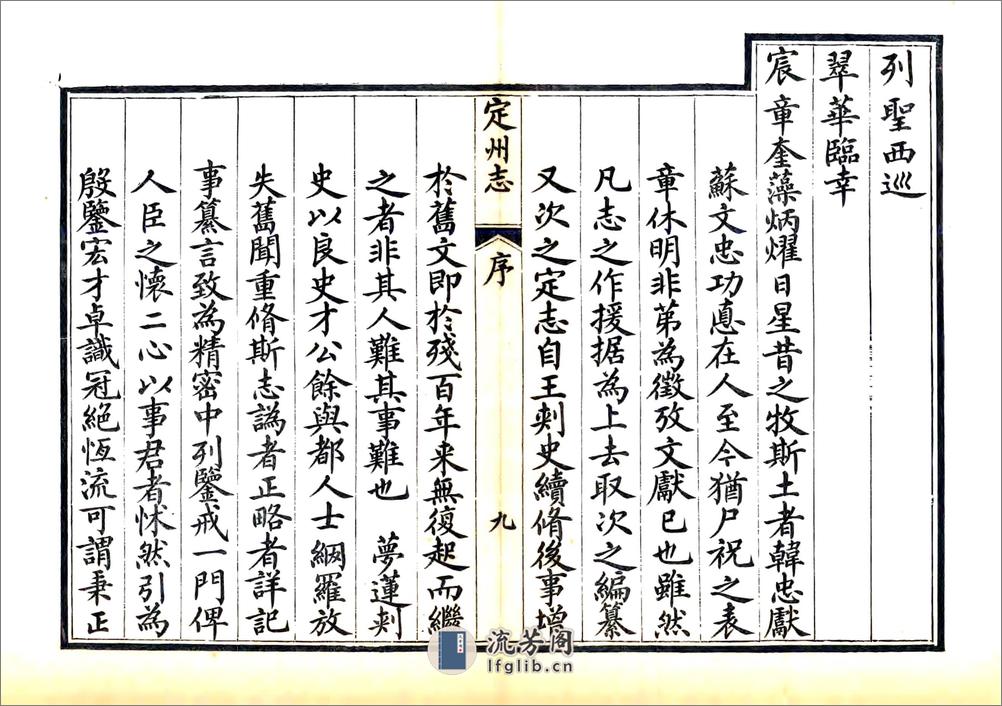 列聖西巡
翠華臨幸
宸章奎藻炳燿日星昔之牧斯土者韓忠獻
蘇文忠功悳在人至今猶尸祝之表
章休明非第為徵攷文獻已也雖然
凡志之作援据為上去取次之編纂
又次之定志自王刾史續脩後事增
定州志
序
九
於舊文即於殘百年来無復起而繼
之者非其人難其事難也 夢蓮刾
史以良史才公餘與都人士網羅放
失舊聞重脩斯志譌者正略者詳記
事纂言致為精密中列鑒戒一門俾
人臣之懷二心以事君者怵然引為
殷鑒宏才卓識冠絕恆流可謂秉正
流芳阁
lfglib.cn